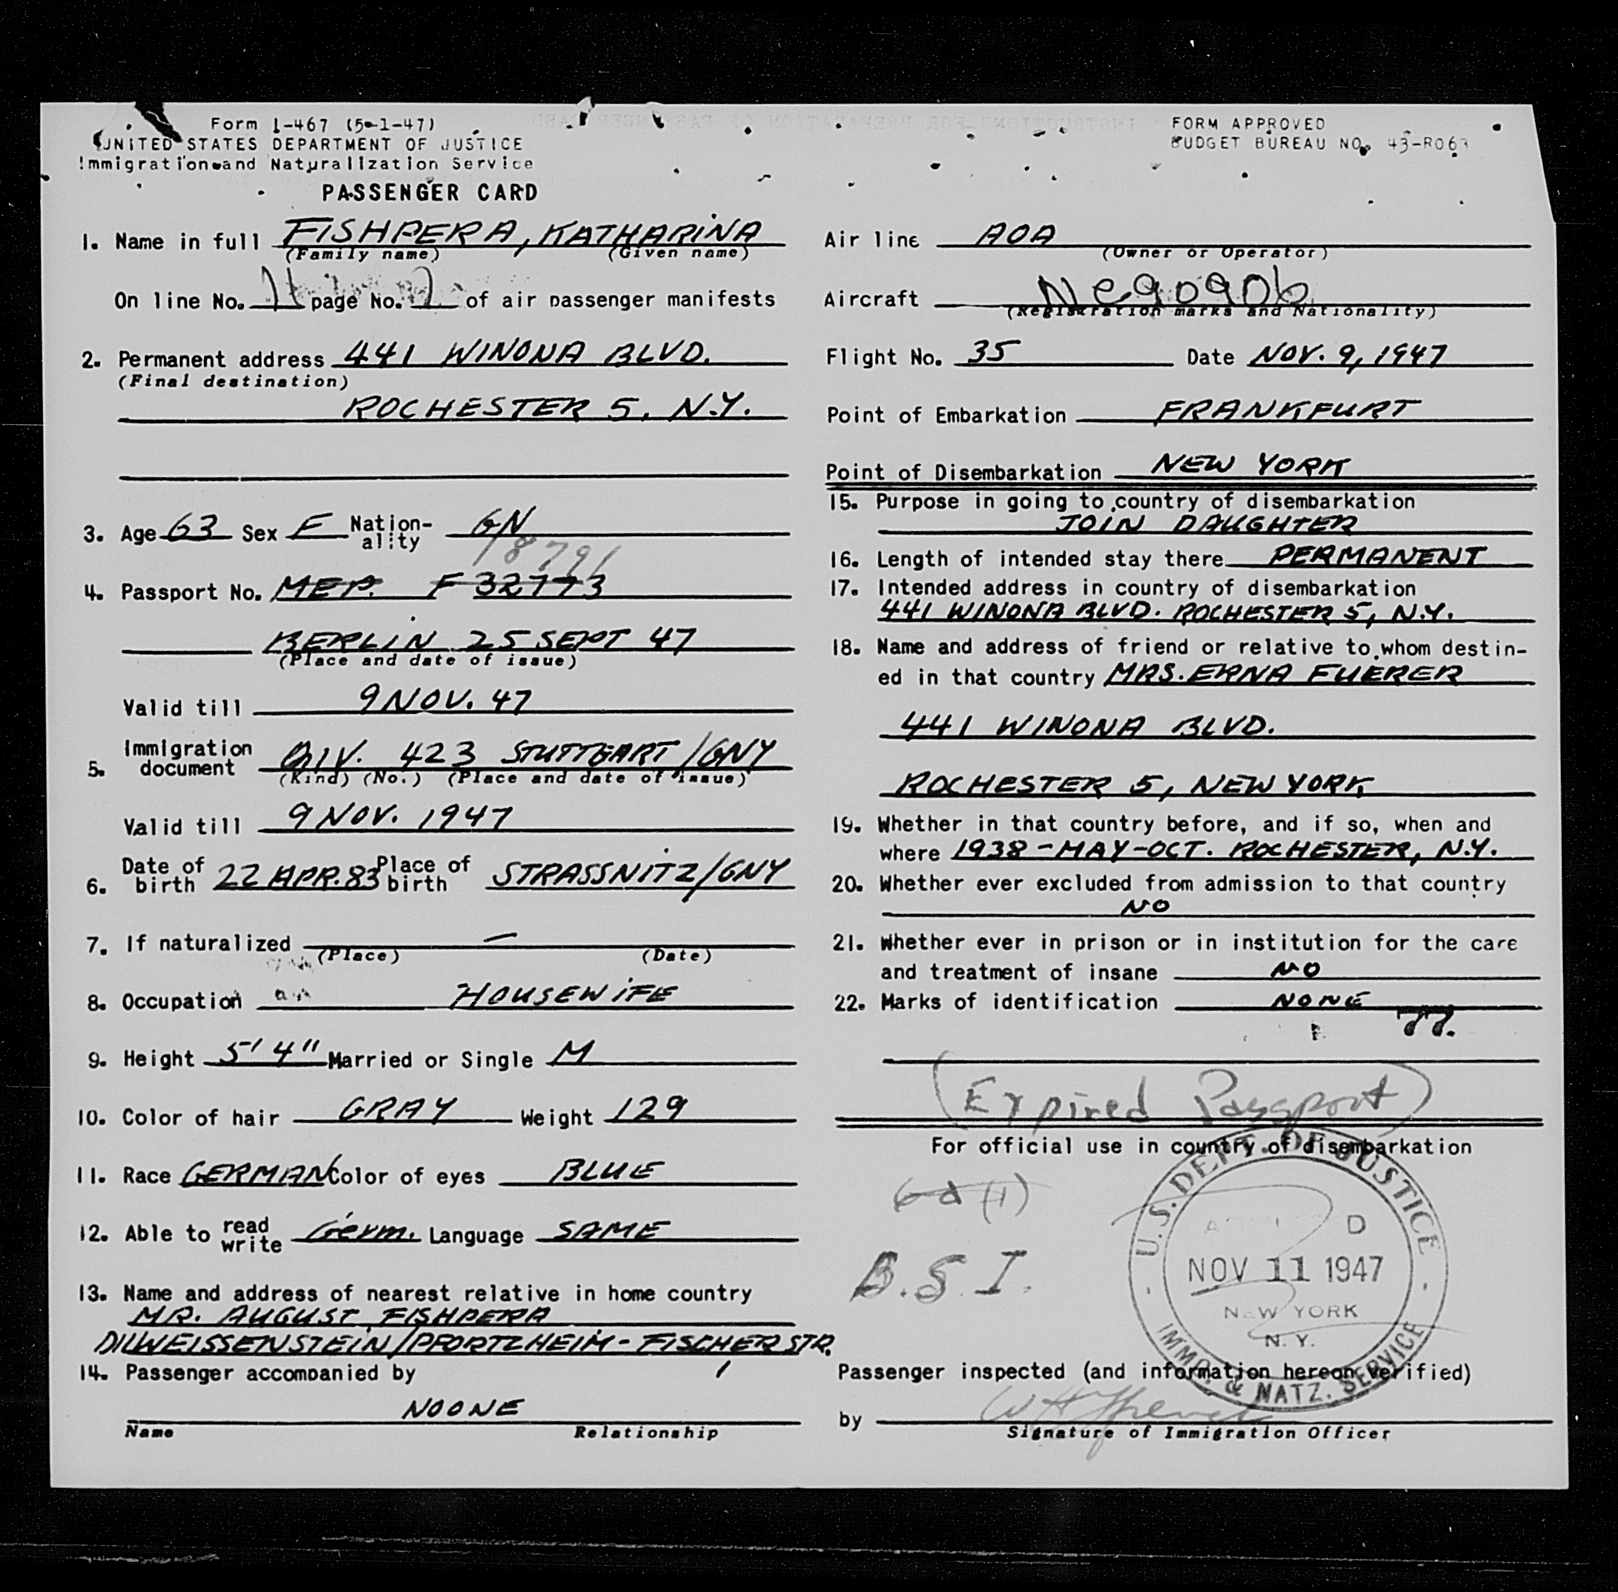 Form I-467 (5-1-47)
UNITED STATES DEPARTMENT OF JUSTICE
Immigration and Naturalization Service
PASSENGER CARD
FORM APPROVED
BUDGET BUREAU NO. 43-R063
1. Name in full FISHPERA, KATHARINA
(Family name) (Given name)
On line No. 11 page No. 2 of air passenger manifests
2. Permanent address 441 WINONA BLVD.
(Final destination)
ROCHESTER 5, N.Y.
3. Age 63 Sex F Nation-ality GN
18791
4. Passport No. MEP. F 32773
BERLIN 25 SEPT 47
(Place and date of issue)
Valid till 9 NOV. 47
5. Immigration document QIV. 423 STUTTGART/GNY
(Kind) (No.) (Place and date of issue)
Valid till 9 NOV. 1947
6. Date of birth 22 APR. 83 Place of birth STRASSNITZ/GNY
7. If naturalized —
(Place) (Date)
8. Occupation HOUSEWIFE
9. Height 5' 4" Married or Single M
10. Color of hair GRAY Weight 129
11. Race GERMAN Color of eyes BLUE
12. Able to read write Germ. Language SAME
13. Name and address of nearest relative in home country
MR. AUGUST FISHPERA
DILLWEISSENSTEIN/PFORTZHEIM - FISCHER STR.
14. Passenger accompanied by 1
NOONE
Name Relationship
Air line AOA
(Owner or Operator)
Aircraft NC90906
(Registration marks and Nationality)
Flight No. 35 Date NOV. 9, 1947
Point of Embarkation FRANKFURT
Point of Disembarkation NEW YORK
15. Purpose in going to country of disembarkation
JOIN DAUGHTER
16. Length of intended stay there PERMANENT
17. Intended address in country of disembarkation
441 WINONA BLVD. ROCHESTER 5, N.Y.
18. Name and address of friend or relative to whom destin-
ed in that country MRS. ERNA FUERER
441 WINONA BLVD.
ROCHESTER 5, NEW YORK
19. Whether in that country before, and if so, when and
where 1938 - MAY - OCT. ROCHESTER, N.Y.
20. Whether ever excluded from admission to that country
NO
21. Whether ever in prison or in institution for the care
and treatment of insane NO
22. Marks of identification NONE
77.
(Expired Passport)
For official use in country of disembarkation
6d (1)
B.S.I.
U.S. DEPT. OF JUSTICE
NOV 11 1947
NEW YORK
N.Y.
IMMG. & NATZ. SERVICE
Passenger inspected (and information hereon verified)
by
Signature of Immigration Officer